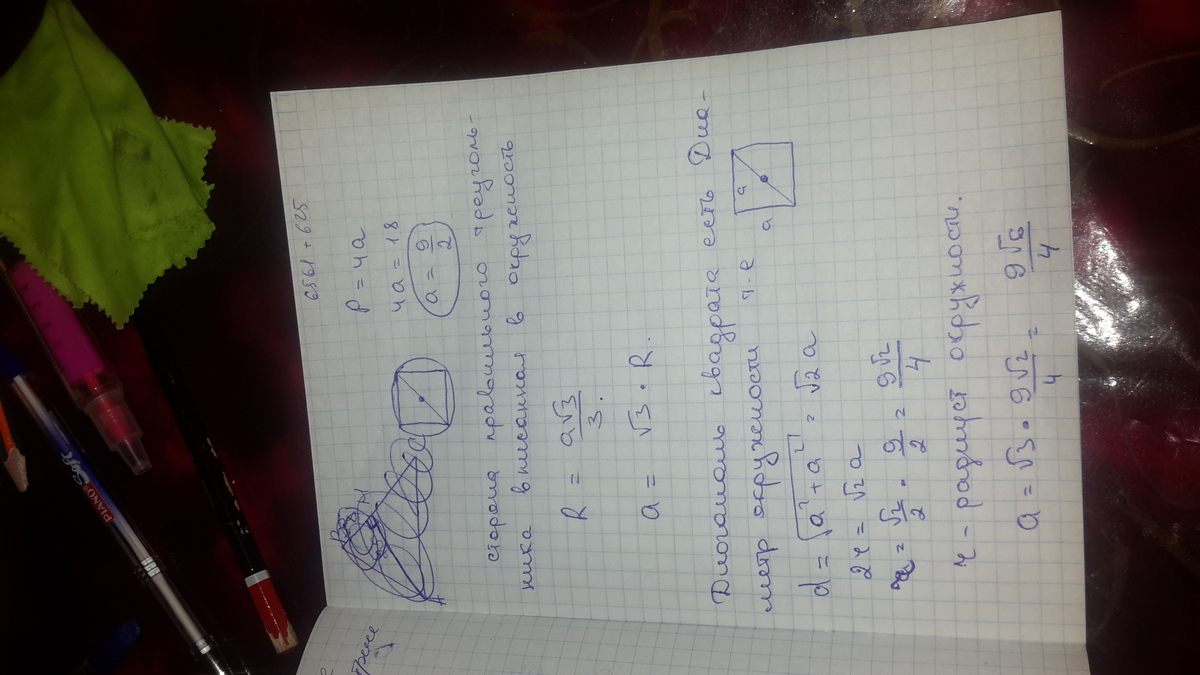 6561 + 625
P = 4a
4a = 18
a = 9/2
сторона правильного треуголь-
ника вписанная в окружность
R = a√3/3.
a = √3 · R.
Диагональ квадрата есть Диа-
метр окружности т.е
a a
d = √a²+a² = √2 a
2r = √2 a
r = √2/2 · 9/2 = 9√2/4
r - радиуст окружности.
a = √3 · 9√2/4 = 9√6/4
PIANO Soft